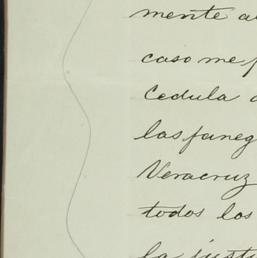 mente a
caso me p
Cedula
las faneg
Veracruz
todos los
la justi